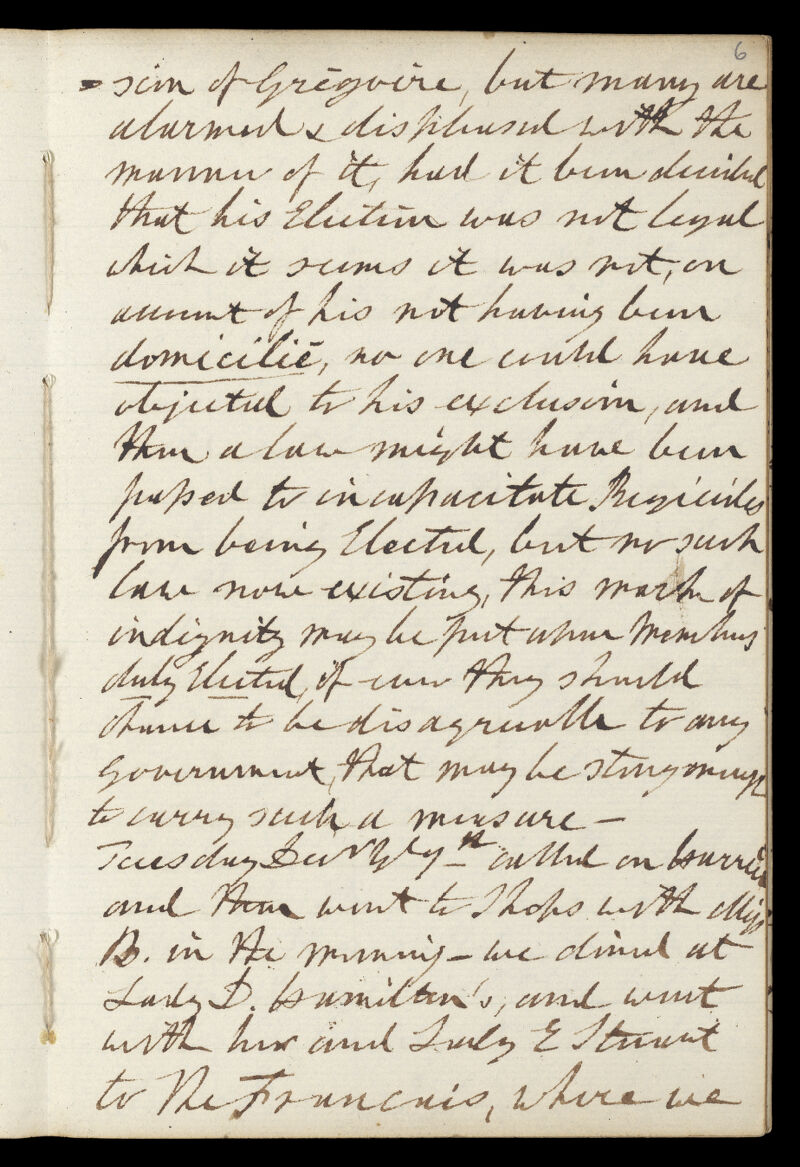 6
-sion of Grégoire, but many are
alarmed & displeased with the
manner of it, had it been decided
that his Election was not legal
which it seems it was not, on
account of his not having been
domicilié, no one could have
objected to his exclusion, and
then a law might have been
passed to incapacitate Regicides
from being Elected, but no such
law now existing, this mark of
indignity may be put upon Members
duly Elected, if ever they should
chance to be disagreeable to any
Government, that may be strong enough
to carry such a measure —
Tuesday Decr 7th called on Harriet
and then went to Shops with Miss
B. in the morning — we dined at
Lady D. Hamilton's, and went
with her and Lady E Stuart
to the Francais, where we